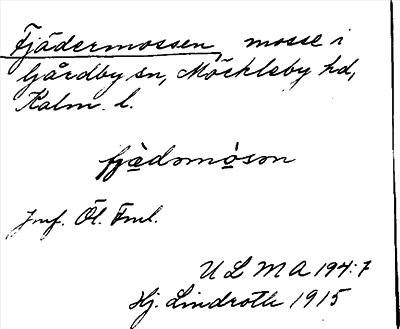 Fjädermossen, mosse i
Gårdby sn, Möckleby hd,
Kalm. l.
fjädomåson
Jmf. Öl. Fml.
U L M A 194:7
Hj. Lindroth 1915